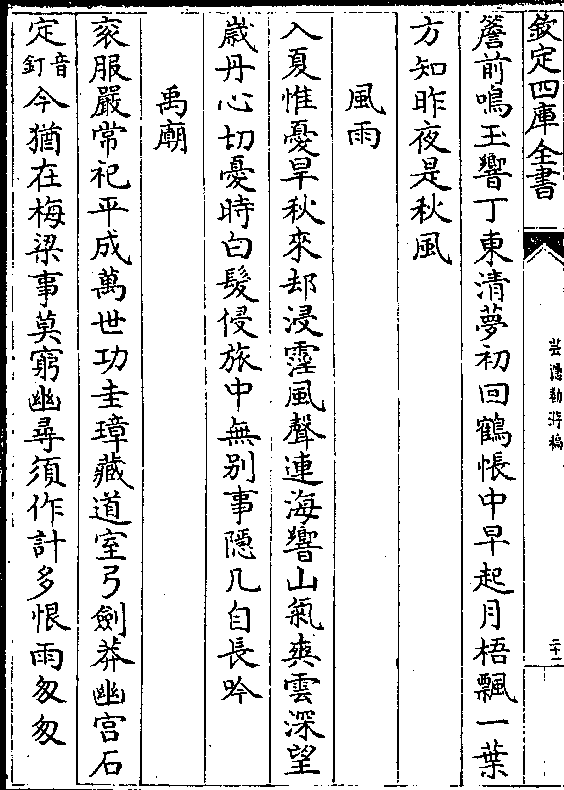 欽定四庫全書
芸隱勌游稿
二十一
簷前鳴玉響丁東清夢初回鶴帳中早起月梧飄一葉
方知昨夜是秋風
風雨
入夏惟憂旱秋來却浸霪風聲連海響山氣爽雲深望
歲丹心切憂時白髮侵旅中無别事隱几自長吟
禹廟
衮服嚴常祀平成萬世功圭璋藏道室弓劍葬幽宫石
定音釘今猶在梅梁事莫窮幽尋須作計多恨雨匆匆